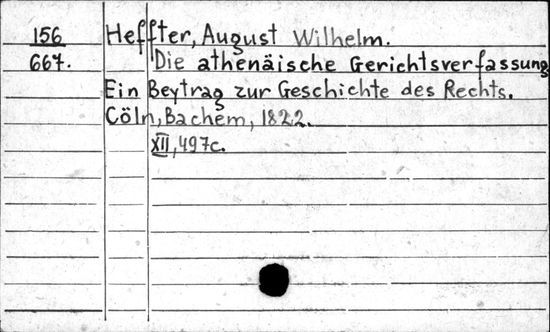 156 Heffter, August Wilhelm.
667. Die athenäische Gerichtsverfassung
Ein Beytrag zur Geschichte des Rechts.
Cöln, Bachem, 1822.
XII, 497c.